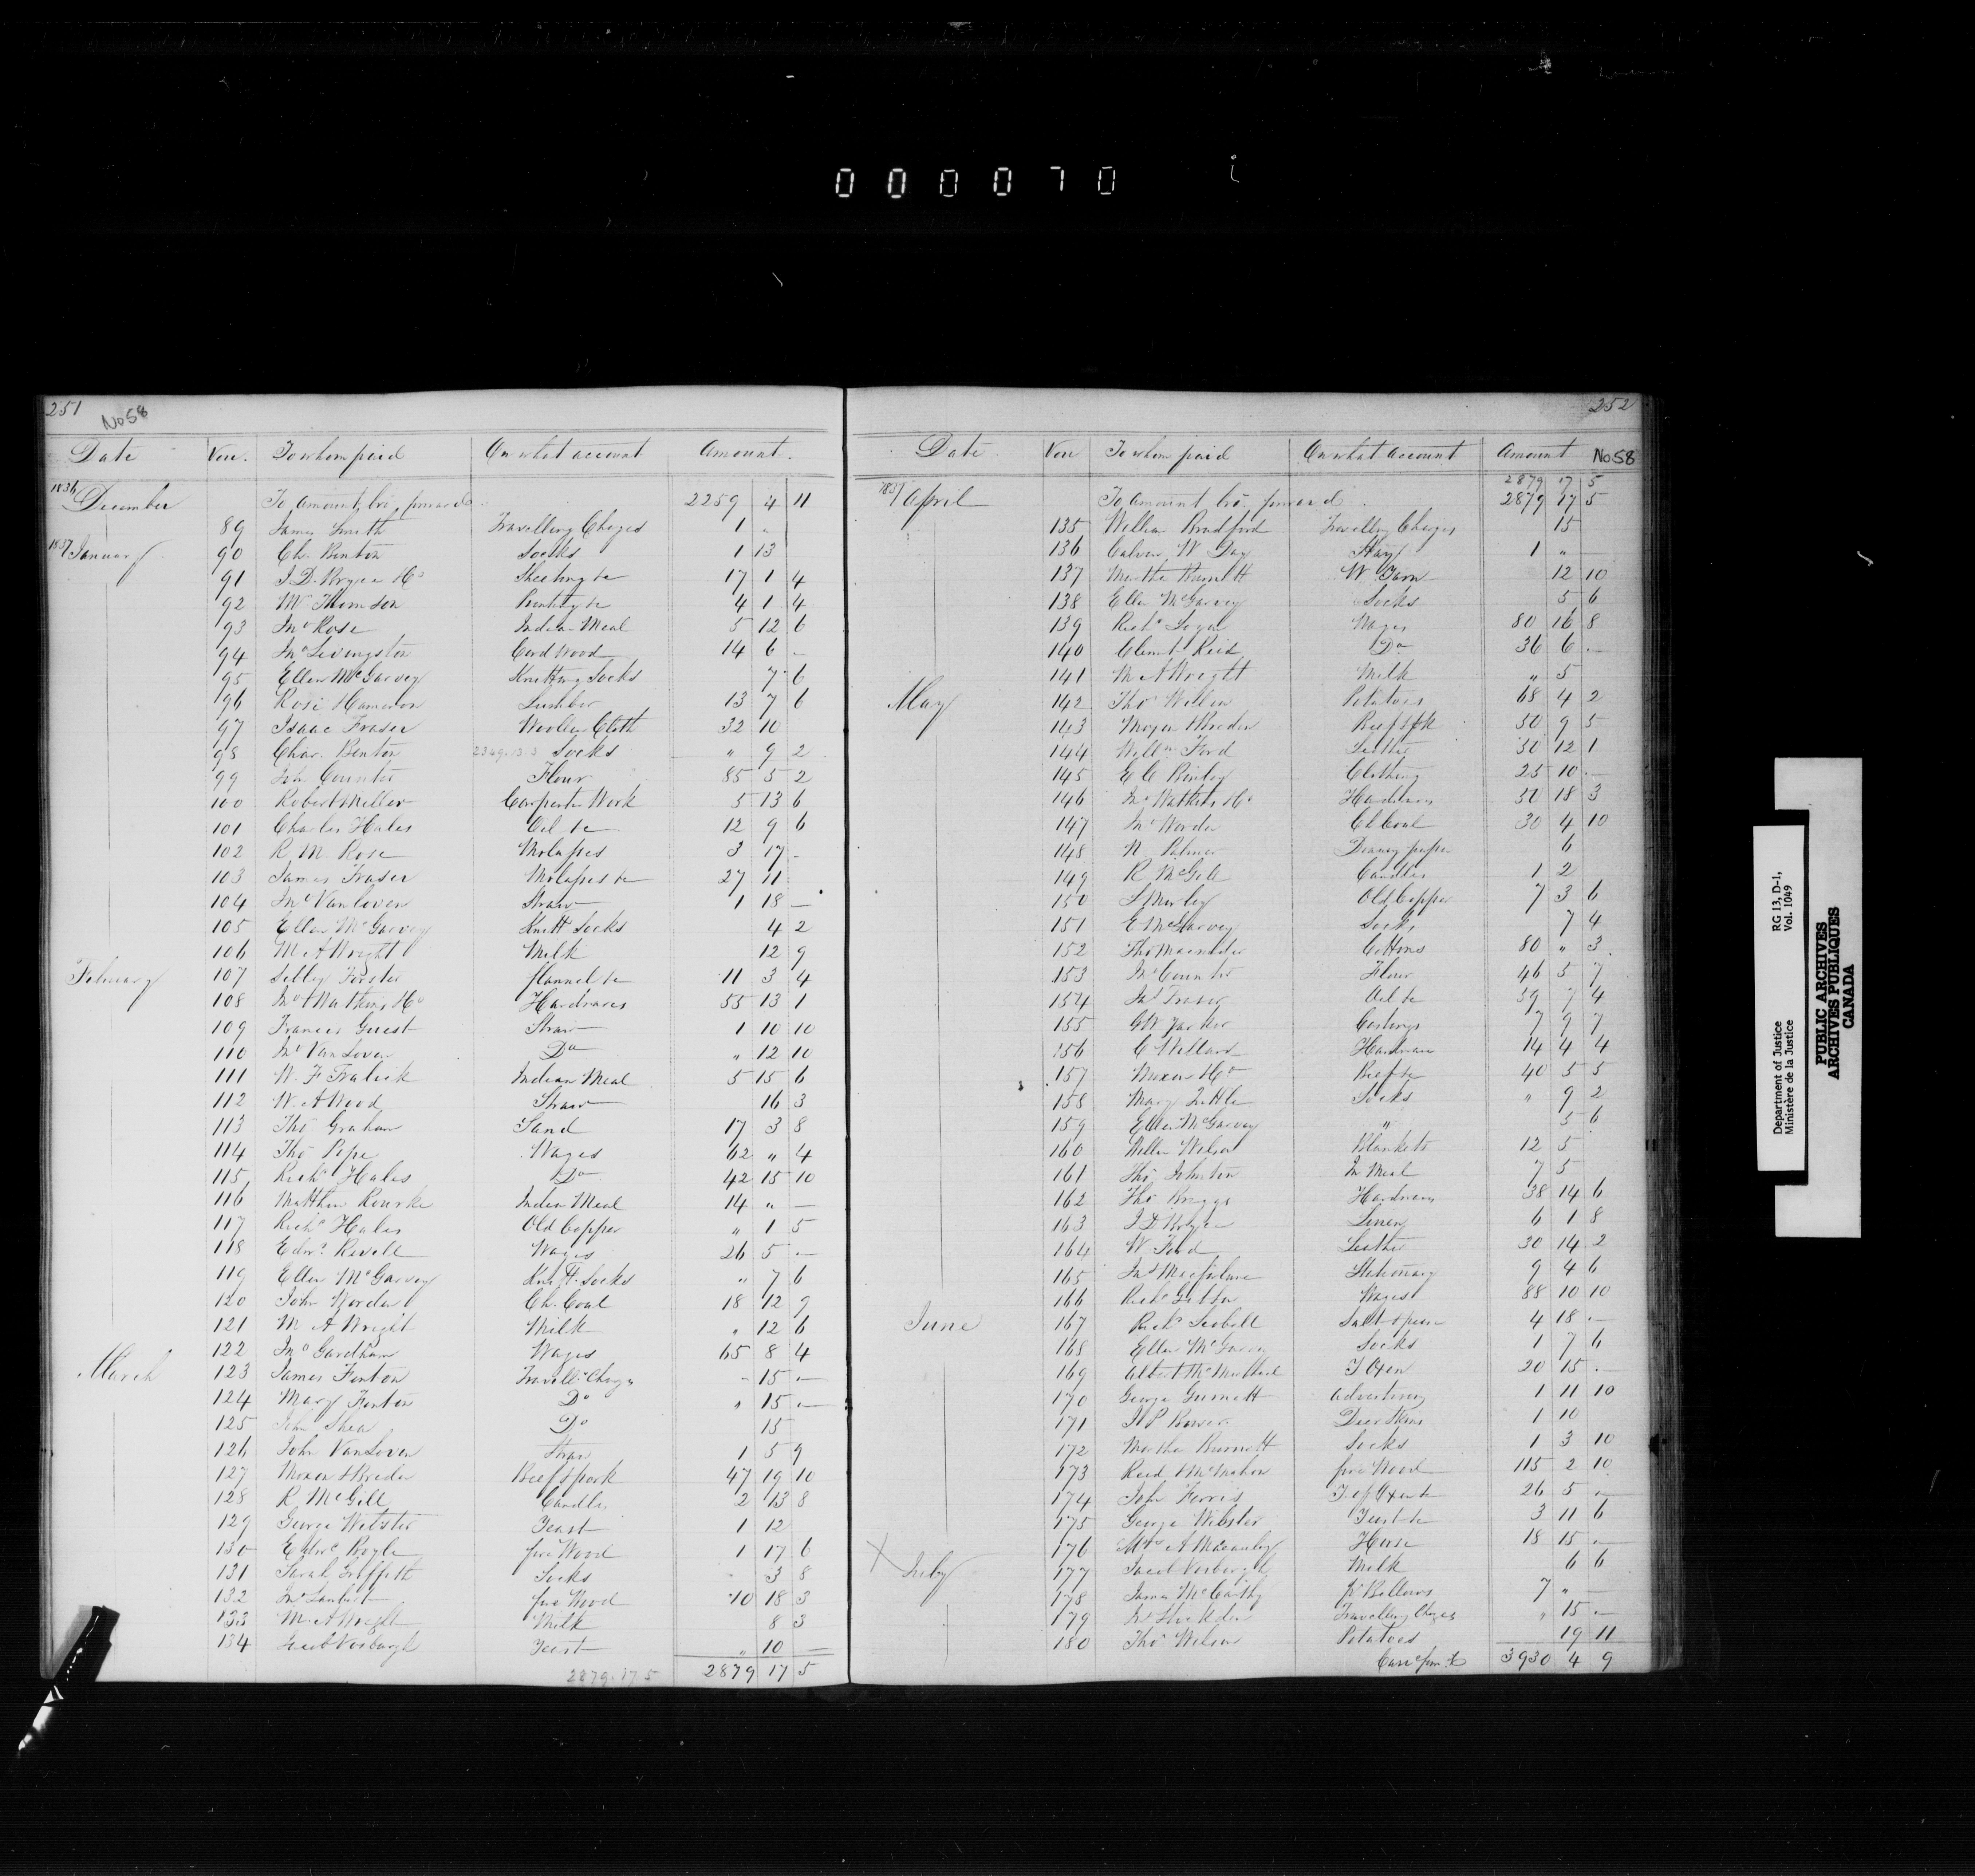 0 0 0 0 7 0
251
No 58
Date Vou. To whom paid On what account Amount.
1836 December To Amount bro. forward 2259 4 11
89 James Smith Travelling Charges 1 "
1837 January 90 Ch. Benton Socks 1 13
91 J. D. Bryce & Co Sheeting &c 17 1 4
92 Thomson Printing &c 4 1 4
93 Jno Rose Indian Meal 5 12 6
94 Jno Livingston Cord Wood 14 6 -
95 Ellen McGarvey Knitting Socks 7 6
96 Cameron Lumber 13 7 6
97 Isaac Fraser Woollen Cloth 32 10
98 Char. Benton 2369.13.3 Socks " 9 2
99 Jno Counter Flour 85 5 2
100 Robert Miller Carpenter Work 5 13 6
101 Charles Hales Oil &c 12 9 6
102 R. M. Rose Molasses 3 17 -
103 James Fraser Molasses &c 27 11
104 Jno VanLoven Straw 1 18 —
105 Ellen McGarvey Knitt Socks 4 2
106 M A Wright Milk 12 9
February 107 Forster flannel &c 11 3 4
108 Jno Watkins & Co Hardwares 55 13 1
109 Frances Guest Straw 1 10 10
110 Jno VanLoven Do " 12 10
111 W. F. Indian Meal 5 15 6
112 W. A Wood Straw 16 3
113 Tho Graham Sand 17 3 8
114 Tho Pope Wages 62 " 4
115 Richd Hales Do 42 15 10
116 Matthew Rourke Indian Meal 14 " —
117 Richd Hales Old Copper " 1 5
118 Edwd Revell Wages 26 5 —
119 Ellen McGarvey Knitt. Socks " 7 6
120 John Worden Ch. Coal 18 12 9
121 M A Wright Milk " 12 6
122 Jno Gardham Wages 65 8 4
March 123 James Fenton Travellg Charges - 15 —
124 Mary Fenton Do " 15 —
125 John Shea Do 15
126 John VanLoven Straw 1 5 9
127 & Breden Beef & pork 47 19 10
128 R McGill Candles 2 13 8
129 George Webster Yeast 1 12
130 Edwd Boyle fire Wood 1 17 6
131 Sarah Griffith Socks 3 8
132 Jno Lambert fire Wood 70 18 3
133 M. A Wright Milk 8 3
134 Jacob Vosburgh Yeast " 10 —
2879.17.5 2879 17 5
252
Date Vou To whom paid On what account Amount No 58
2879 17 5
1837 April To Amount bro. forward 2879 17 5
135 William Bradford Travelling Charges 15
136 Calvin W Day Hay 1 " —
137 Martha Burnett W. Yarn 12 10
138 Ellen McGarvey Socks 5 6
139 Richd Wages 80 16 8
140 Clement Reid Do 36 6 —
141 M A Wright Milk " 5
May 142 Tho Potatoes 68 4 2
143 & Breden Beef & Pk 50 9 5
144 Willm Ford Leather 30 12 1
145 E C Clothing 25 10 —
146 Jno Watkins & Co Hardware 50 18 3
147 Jno Worden Ch Coal 30 4 10
148 N. Palmer Drawg paper 6
149 R McGill Candles 1 2
150 Old Copper 7 3 6
151 E McGarvey Socks 7 4
152 Tho Cottons 80 " 3
153 Jno Counter Flour 46 5 7
154 Jas Fraser Oil &c 59 7 4
155 G W Yarker Castings 7 9 7
156 C Willard Hardware 14 4 4
157 & Co Beef &c 40 5 5
158 Mary Little Socks " 9 2
159 Ellen McGarvey " 5 6
160 Willm Wilson Blankets 12 5
161 Tho Johnston In Meal 7 5
162 Tho Briggs Hardware 38 14 6
163 J D Bryce Linen 6 1 8
164 W. Ford Leather 30 14 2
165 Jas Macfarlane Stationary 9 4 6
166 Richd Wages 88 10 10
June 167 Richd Scobell Salt 4 18 —
168 Ellen McGarvey Socks 1 7 6
169 Albert Oxen 20 15 —
170 George Gurnett Advertising 1 11 10
171 Deer Skins 1 10
172 Martha Burnett Socks 1 3 10
173 Reed McMahon fire Wood 115 2 10
174 John Ferris Y. of Oxen &c 26 5 —
175 George Webster Yeast &c 3 11 6
176 Mrs A Macaulay Horse 18 15 —
X July 177 Jacob Vosburgh Milk 6 6
178 James McCarthy Bellows 7 " —
179 Travelling Charges " 15 —
180 Thos Wilson Potatoes 19 11
Card forwd 3930 4 9
Department of Justice
Ministère de la Justice
RG 13, D-1,
Vol. 1049
PUBLIC ARCHIVES
ARCHIVES PUBLIQUES
CANADA